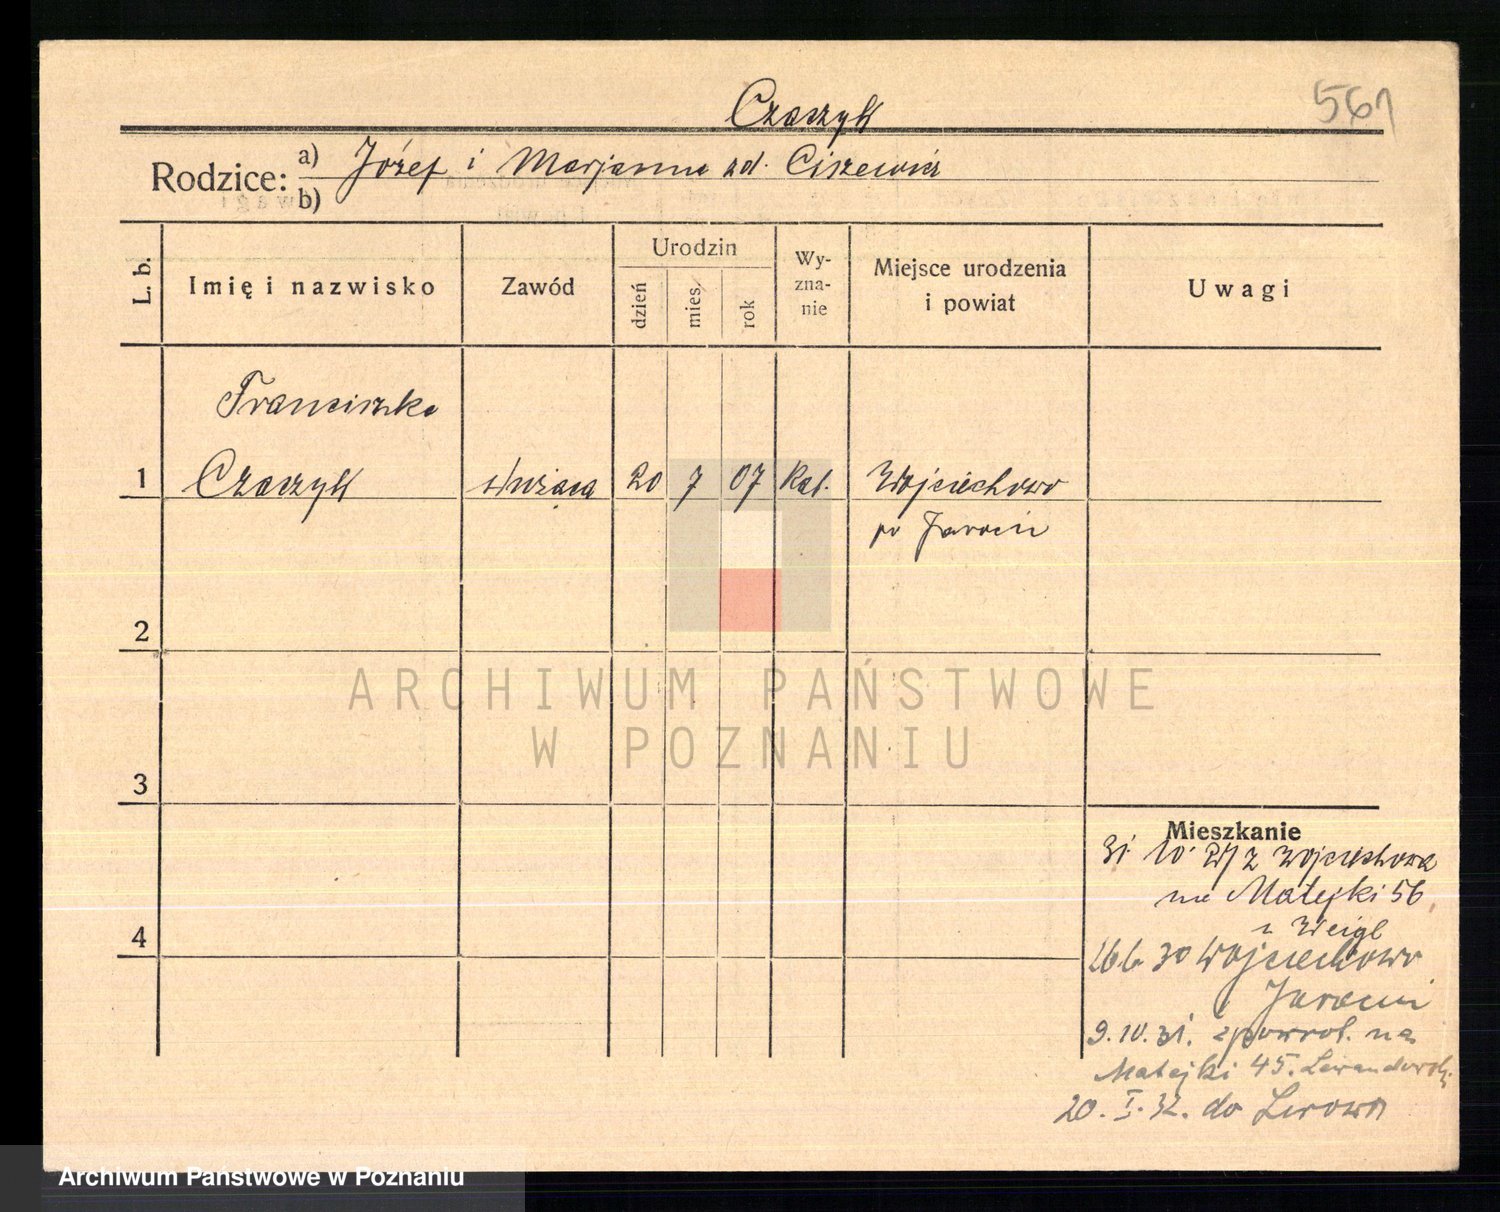 Czaczyk
561
Rodzice: a) Józef i Marjanna zd.
b)
L. b.
Imię i nazwisko
Zawód
Urodzin
dzień
mies.
rok
Wy-
zna-
nie
Miejsce urodzenia
i powiat
Uwagi
Franciszka
1 Czaczyk służąca 20 7 07 kat. Wojciechowo
po Jarocin
2
3
4
ARCHIWUM PAŃSTWOWE
W POZNANIU
Mieszkanie
z Wojciechowa
na Matejki 56
Weigl
30 Wojciechowo
Jarocin
9.10.31. zpowrot. na
Matejki 45.
20. I. 32. do Lwowa
Archiwum Państwowe w Poznaniu